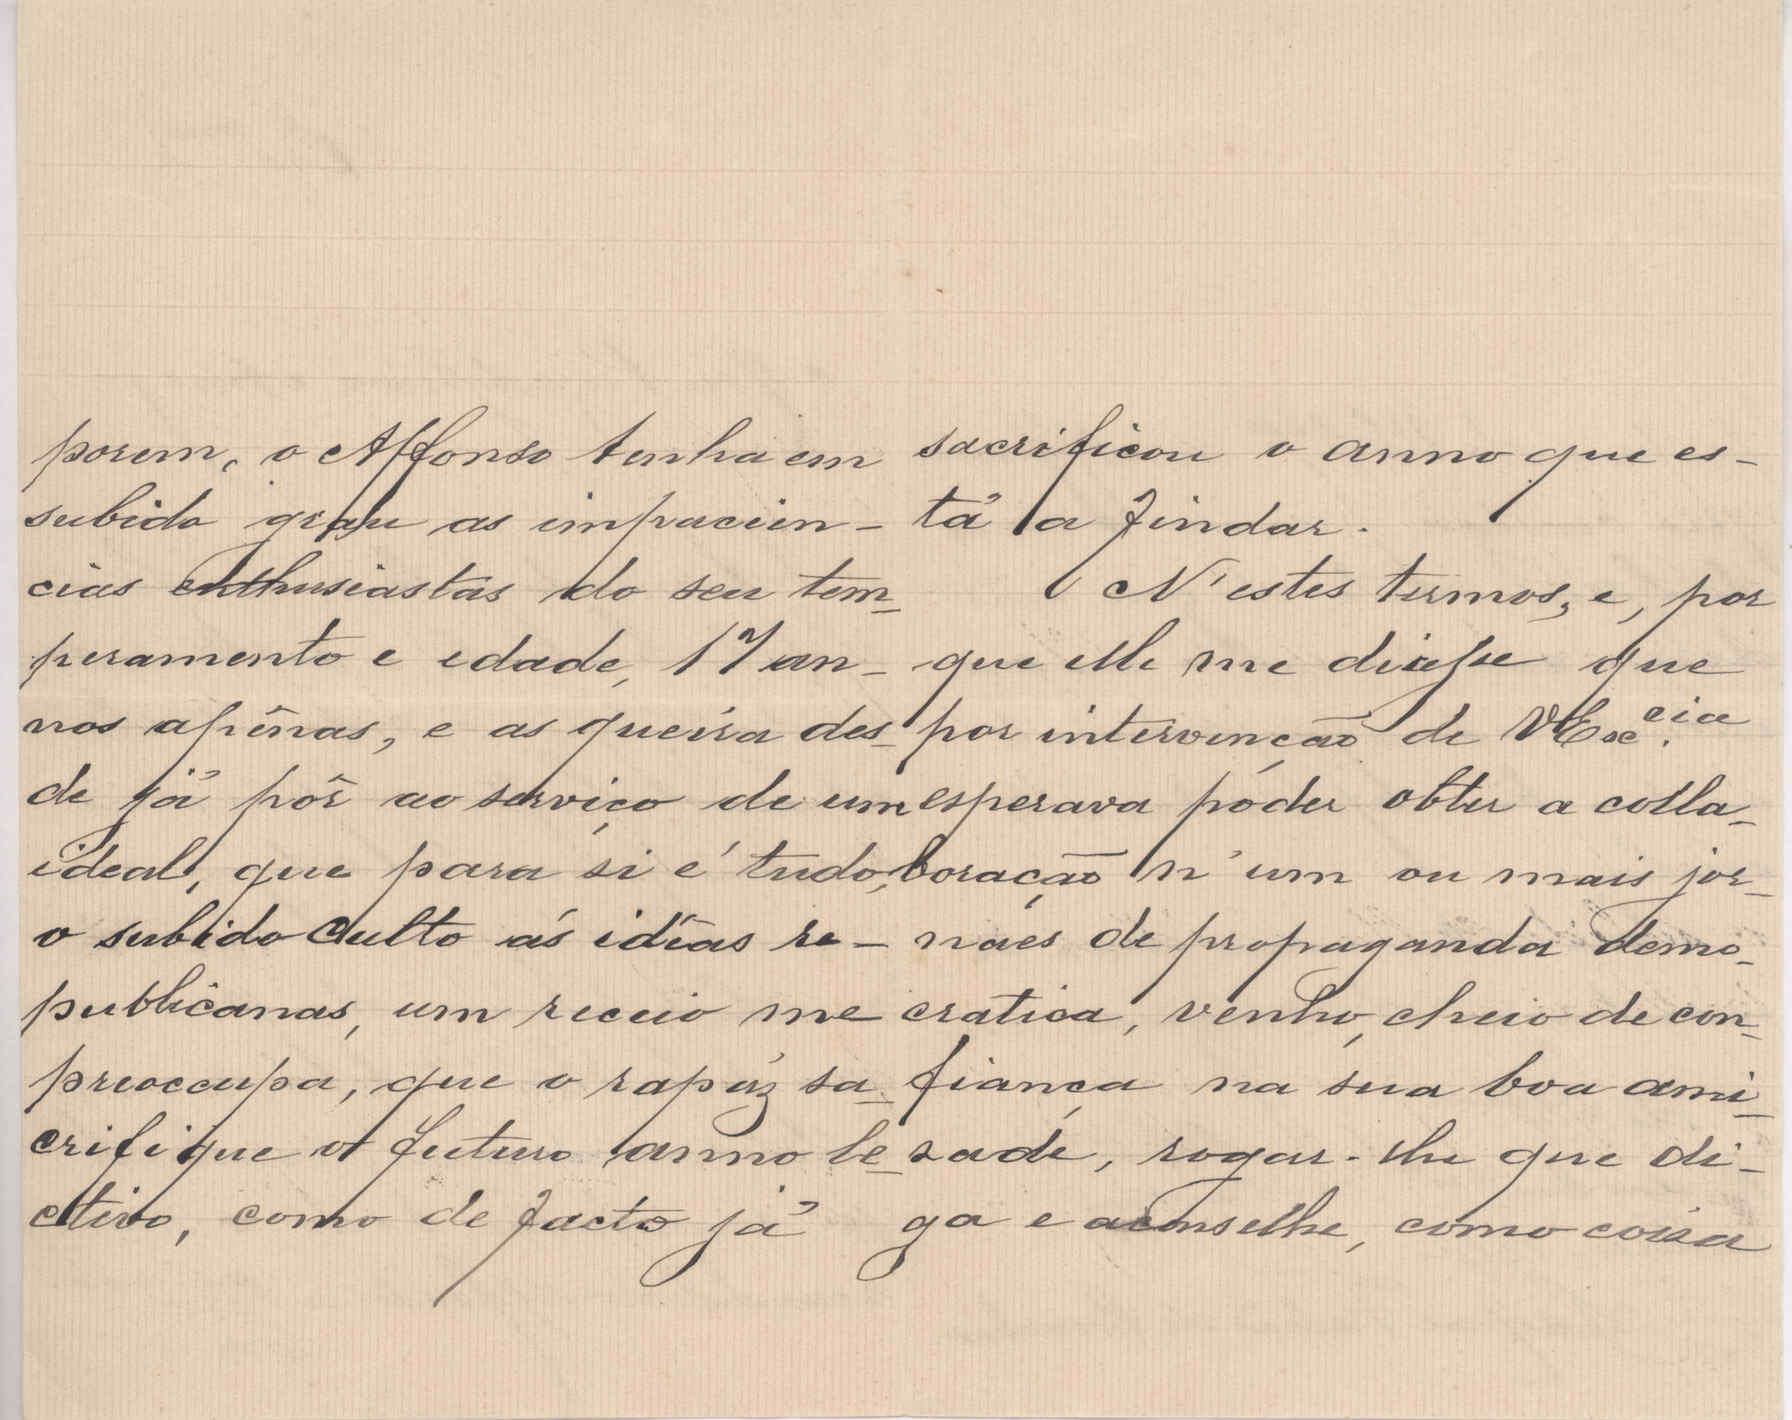 porem, o Affonso tenha em
subido grau as impacien-
cias enthusiastas do seu tem-
peramento e edade, 17 an-
nos apênas, e as queira des-
de já pôr ao serviço de um
ideal, que para si é tudo,
o subido culto ás idêas re-
publicanas, um receio me
preoccupa, que o rapáz sa-
crifique o futuro anno le-
ctivo, como de facto já
sacrificou o anno que es-
tá a findar.
N'estes termos, e, por
que elle me dicesse que
por intervenção de V Exc.cia
esperava póder obter a colla-
boração n'um ou mais jor-
náes de propaganda demo-
cratica, venho, cheio de con-
fiança na sua boa ami-
sade, rogar-lhe que di-
ga e aconselhe, como coisa